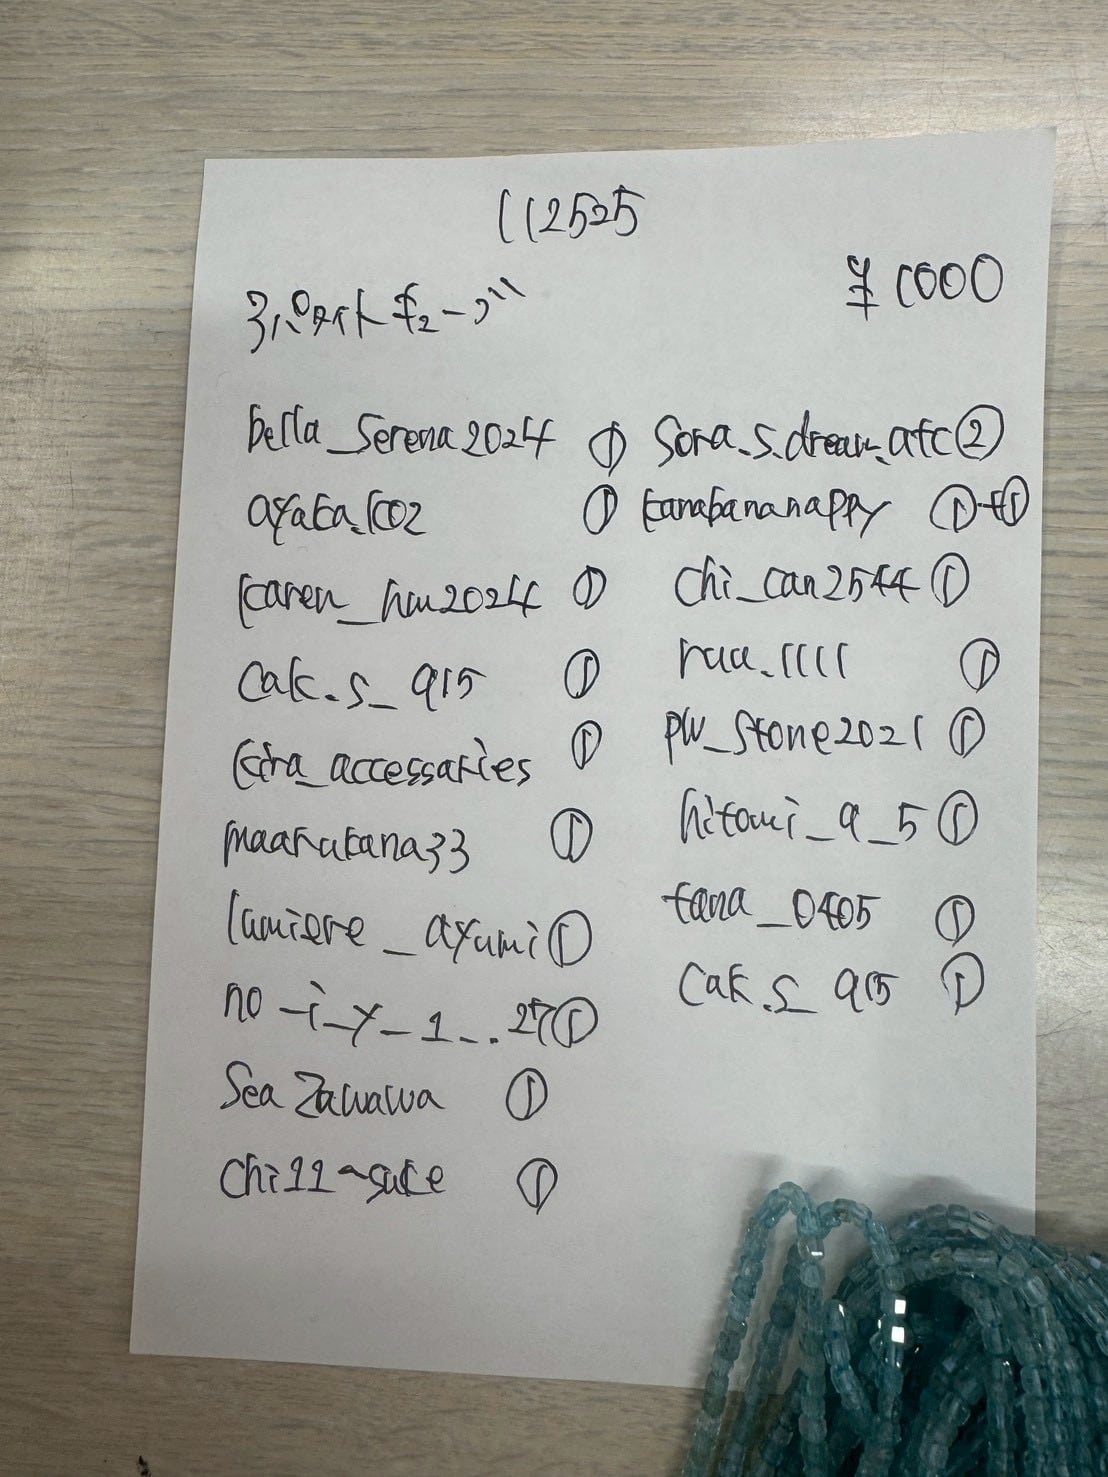 112525
¥1000
アパタイトキューブ
bella_serena2024 ①
ayaka.k02 ①
karen_hm2024 ①
cak.s_915 ①
kira_accessaries ①
maarukana33 ①
lumiere_ayumi ①
no_i_y_1_..27 ①
Sea Zawawa ①
chi11~suke ①
sora.s.dream.afc ②
kanabananappy ①+①
chi_can2544 ①
ruu.1111 ①
pw_stone2021 ①
hitomi_9_5 ①
tana_0405 ①
cak.s_915 ①